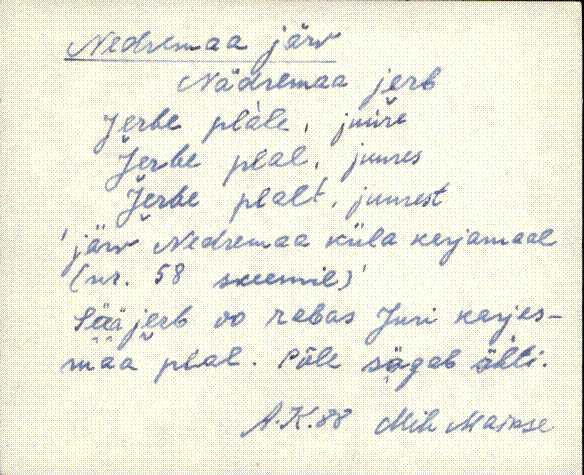 Nedremaa järv
Nädremaa jerb
Jerbe pläle, juure
Jerbe plal, juures
Jerbe plalt, juurest
'järv Nedremaa küla karjamaal
(nr. 58 skeemil)'
Sääjerb oo rabas Juri karjas-
maa plal. Põle sägab ähti.
A.K. 88 Mih